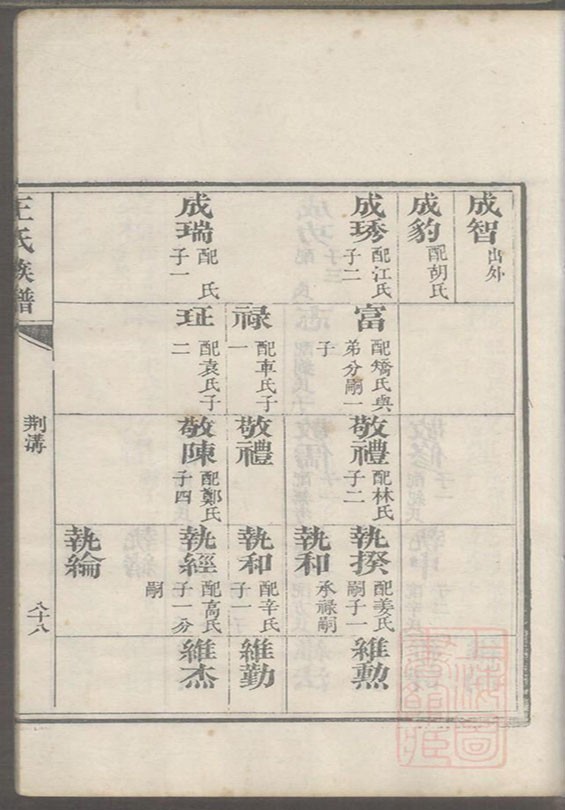 成智 出外
成豹 配胡氏
成琇 配江氏子二
成瑞 配 氏子一
富 配矯氏與弟分嗣一子
禄 配車氏子一
玨 配袁氏子二
敬禮 配林氏子二
敬禮
敬陳 配鄭氏子四
執揆 配姜氏嗣子一
執和 承禄嗣
執和 配辛氏子一
執經 配高氏子一分嗣
執綸
維勲
維勤
維杰
王氏族譜
荆溝
八十八